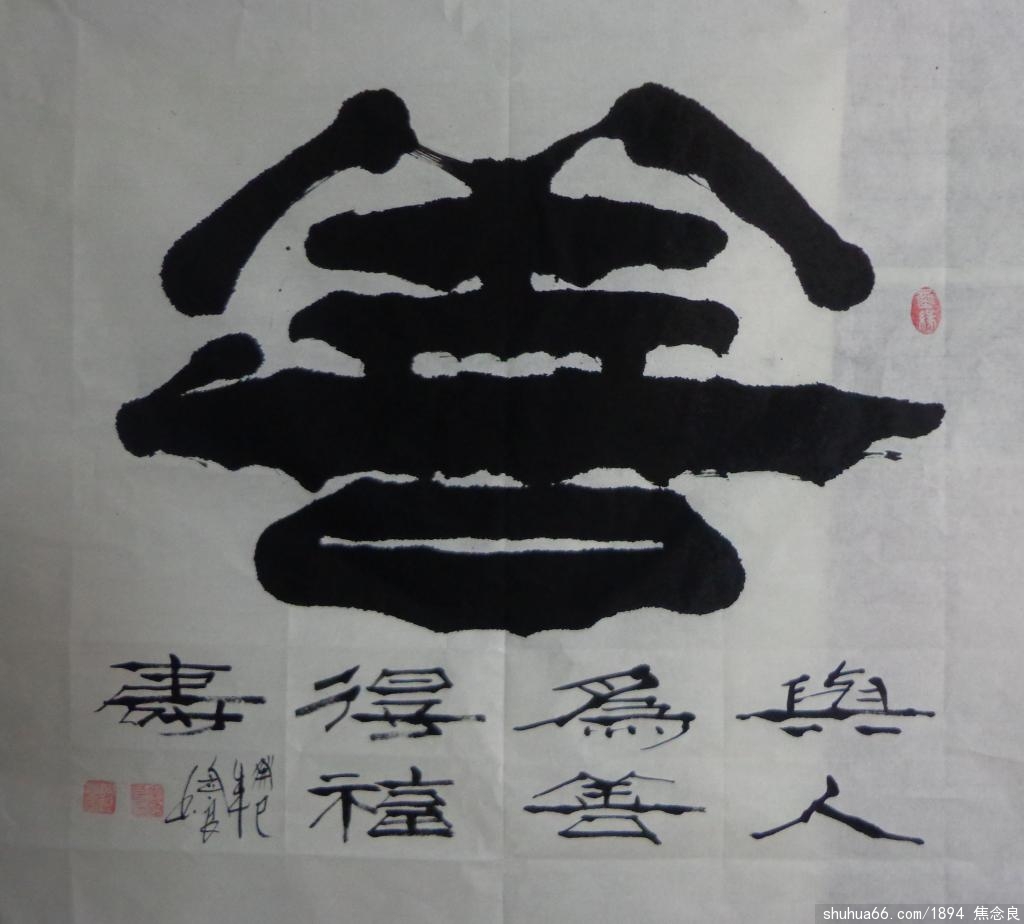 善
與人
爲善
得福
壽
癸巳年
念良书
shuhua66.com/1894 焦念良